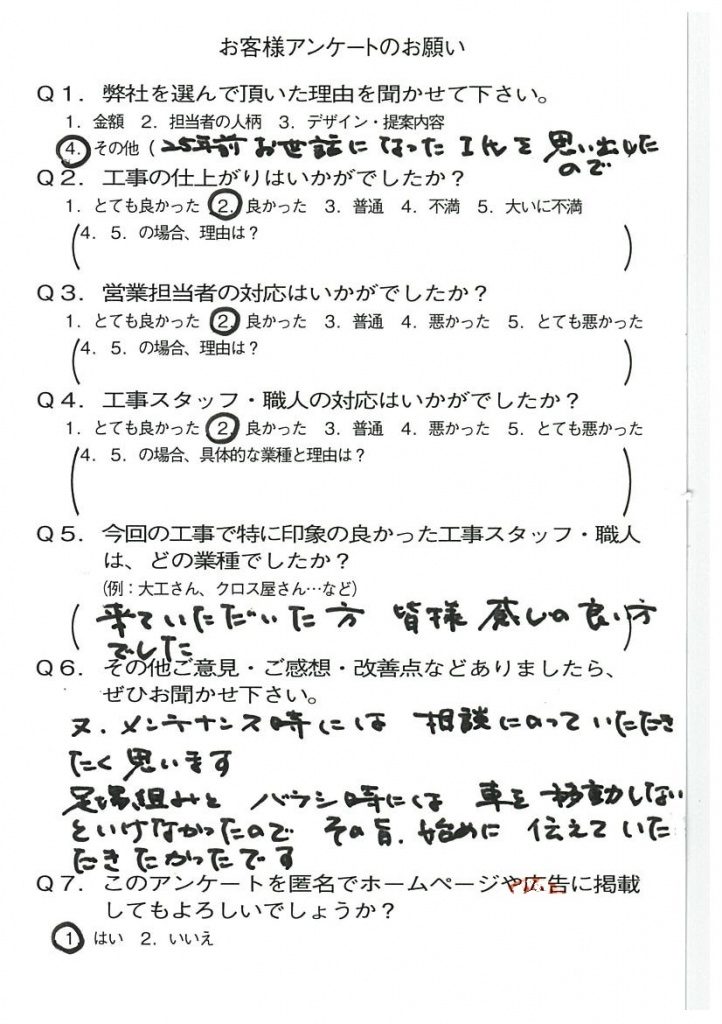 お客様アンケートのお願い
Q1. 弊社を選んで頂いた理由を聞かせて下さい。
1. 金額 2. 担当者の人柄 3. デザイン・提案内容
4. その他 ( 25年前 お世話に なった を 思い出した
ので
Q2. 工事の仕上がりはいかがでしたか?
1. とても良かった 2. 良かった 3. 普通 4. 不満 5. 大いに不満
(4. 5. の場合、理由は? )
Q3. 営業担当者の対応はいかがでしたか?
1. とても良かった 2. 良かった 3. 普通 4. 悪かった 5. とても悪かった
(4. 5. の場合、理由は? )
Q4. 工事スタッフ・職人の対応はいかがでしたか?
1. とても良かった 2. 良かった 3. 普通 4. 悪かった 5. とても悪かった
(4. 5. の場合、具体的な業種と理由は? )
Q5. 今回の工事で特に印象の良かった工事スタッフ・職人
は、どの業種でしたか?
(例:大工さん、クロス屋さん…など)
( 来ていただいた方 皆様 感じの良い方 )
でした
Q6. その他ご意見・ご感想・改善点などありましたら、
ぜひお聞かせ下さい。
又、メンテナンス時には 相談にのっていただき
たく思います
足場組みと バラシ時には 車を移動しない
といけなかったので その旨、始めに 伝えていた
だきたかったです
Q7. このアンケートを匿名でホームページや広告に掲載
してもよろしいでしょうか?
1. はい 2. いいえ